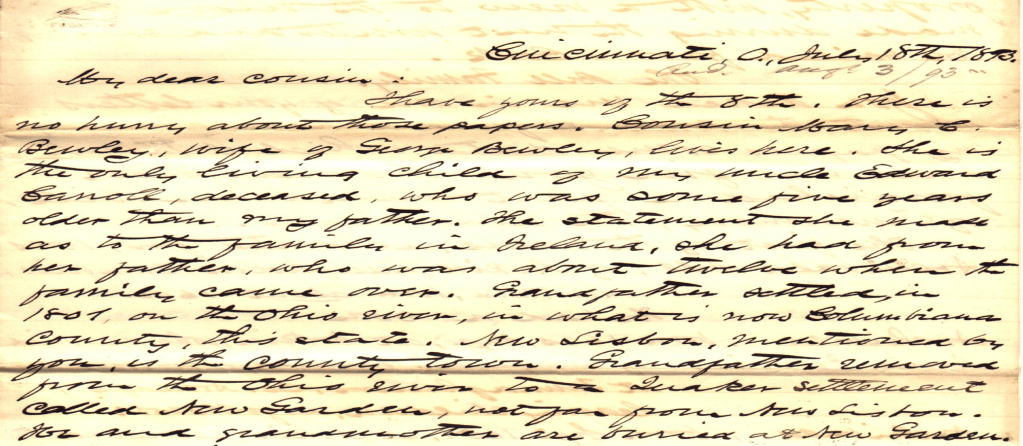 Cincinnati, O., July 18th, 1893.
Ans. Augt 3/93
My dear cousin:
I have yours of the 8th. There is
no hurry about those papers. Cousin Mary C.
Bewley, wife of George Bewley, lives here. She is
the only living child of my uncle Edward
Carroll, deceased, who was some five years
older than my father. The statement she made
as to the family in Ireland, she had from
her father, who was about twelve when the
family came over. Grandfather settled, in
1801, on the Ohio river, in what is now Columbiana
County, this state. New Lisbon, mentioned by
you, is the county town. Grandfather removed
from the Ohio river to a Quaker settlement
called New Garden, not far from New Lisbon.
He and grandmother are buried at New Garden.